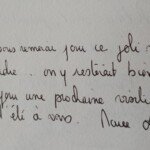 vous remercie pour ce joli
on y resterait bien
pour une prochaine visite
été à vous.